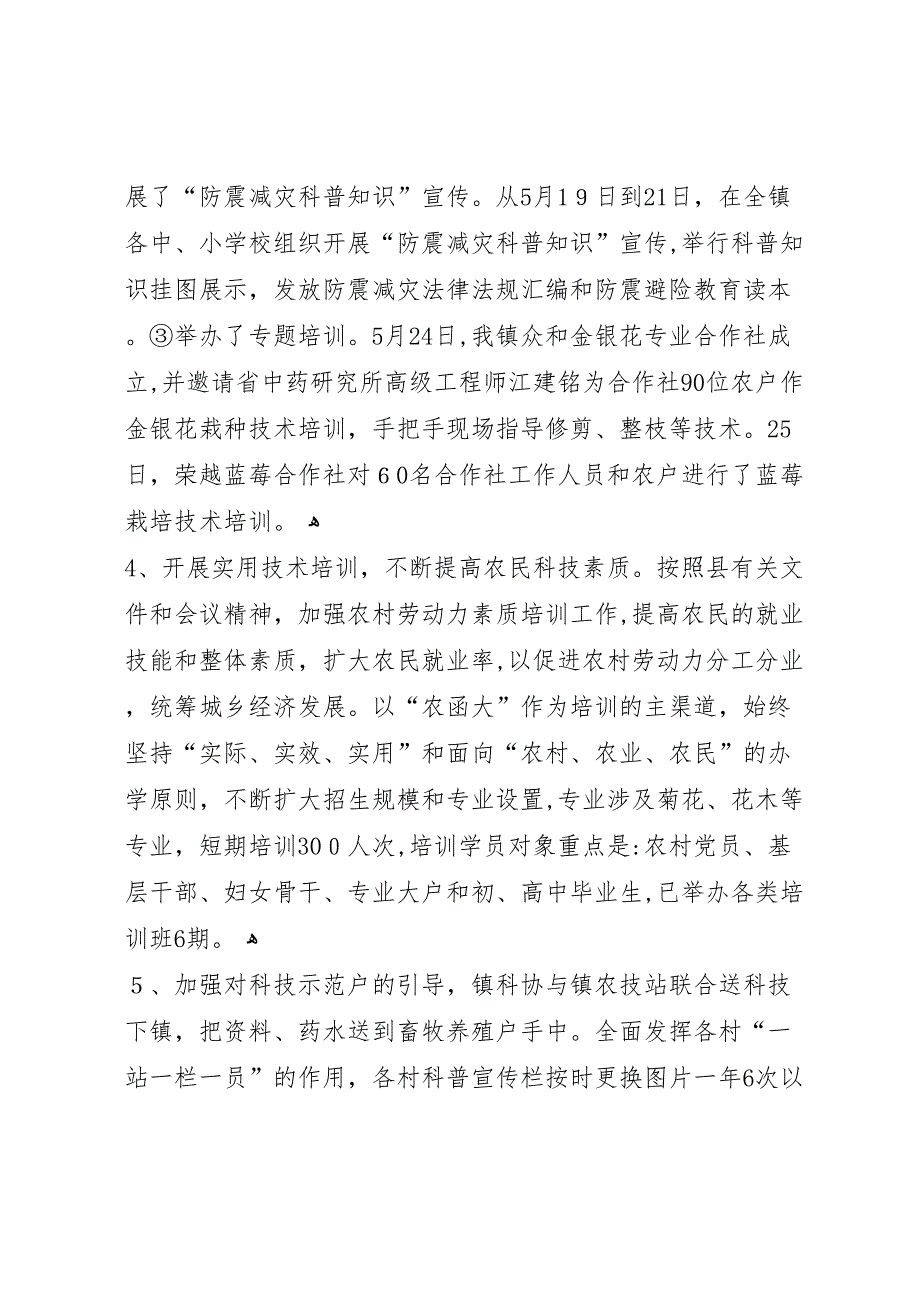 展了“防震减灾科普知识”宣传。从5月1９日到21日，在全镇
各中、小学校组织开展“防震减灾科普知识”宣传,举行科普知
识挂图展示，发放防震减灾法律法规汇编和防震避险教育读本
。③举办了专题培训。5月24日,我镇众和金银花专业合作社成
立,并邀请省中药研究所高级工程师江建铭为合作社90位农户作
金银花栽种技术培训，手把手现场指导修剪、整枝等技术。25
日，荣越蓝莓合作社对６0名合作社工作人员和农户进行了蓝莓
栽培技术培训。 ﻫ
4、开展实用技术培训，不断提高农民科技素质。按照县有关文
件和会议精神，加强农村劳动力素质培训工作,提高农民的就业
技能和整体素质，扩大农民就业率,以促进农村劳动力分工分业
，统筹城乡经济发展。以“农函大”作为培训的主渠道，始终
坚持“实际、实效、实用”和面向“农村、农业、农民”的办
学原则，不断扩大招生规模和专业设置,专业涉及菊花、花木等
专业，短期培训30０人次,培训学员对象重点是:农村党员、基
层干部、妇女骨干、专业大户和初、高中毕业生,已举办各类培
训班6期。 ﻫ
５、加强对科技示范户的引导，镇科协与镇农技站联合送科技
下镇，把资料、药水送到畜牧养殖户手中。全面发挥各村“一
站一栏一员”的作用，各村科普宣传栏按时更换图片一年6次以